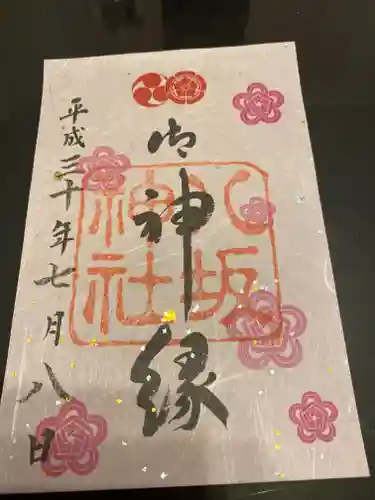 御神縁
八坂神社
平成三十年七月八日